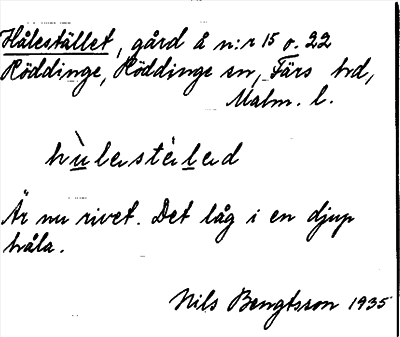 Hålestället, gård å n:r 15 o. 22
Röddinge, Röddinge sn, Färs hd,
Malm. l.
Är nu rivet. Det låg i en djup
håla.
Nils Bengtsson 1935